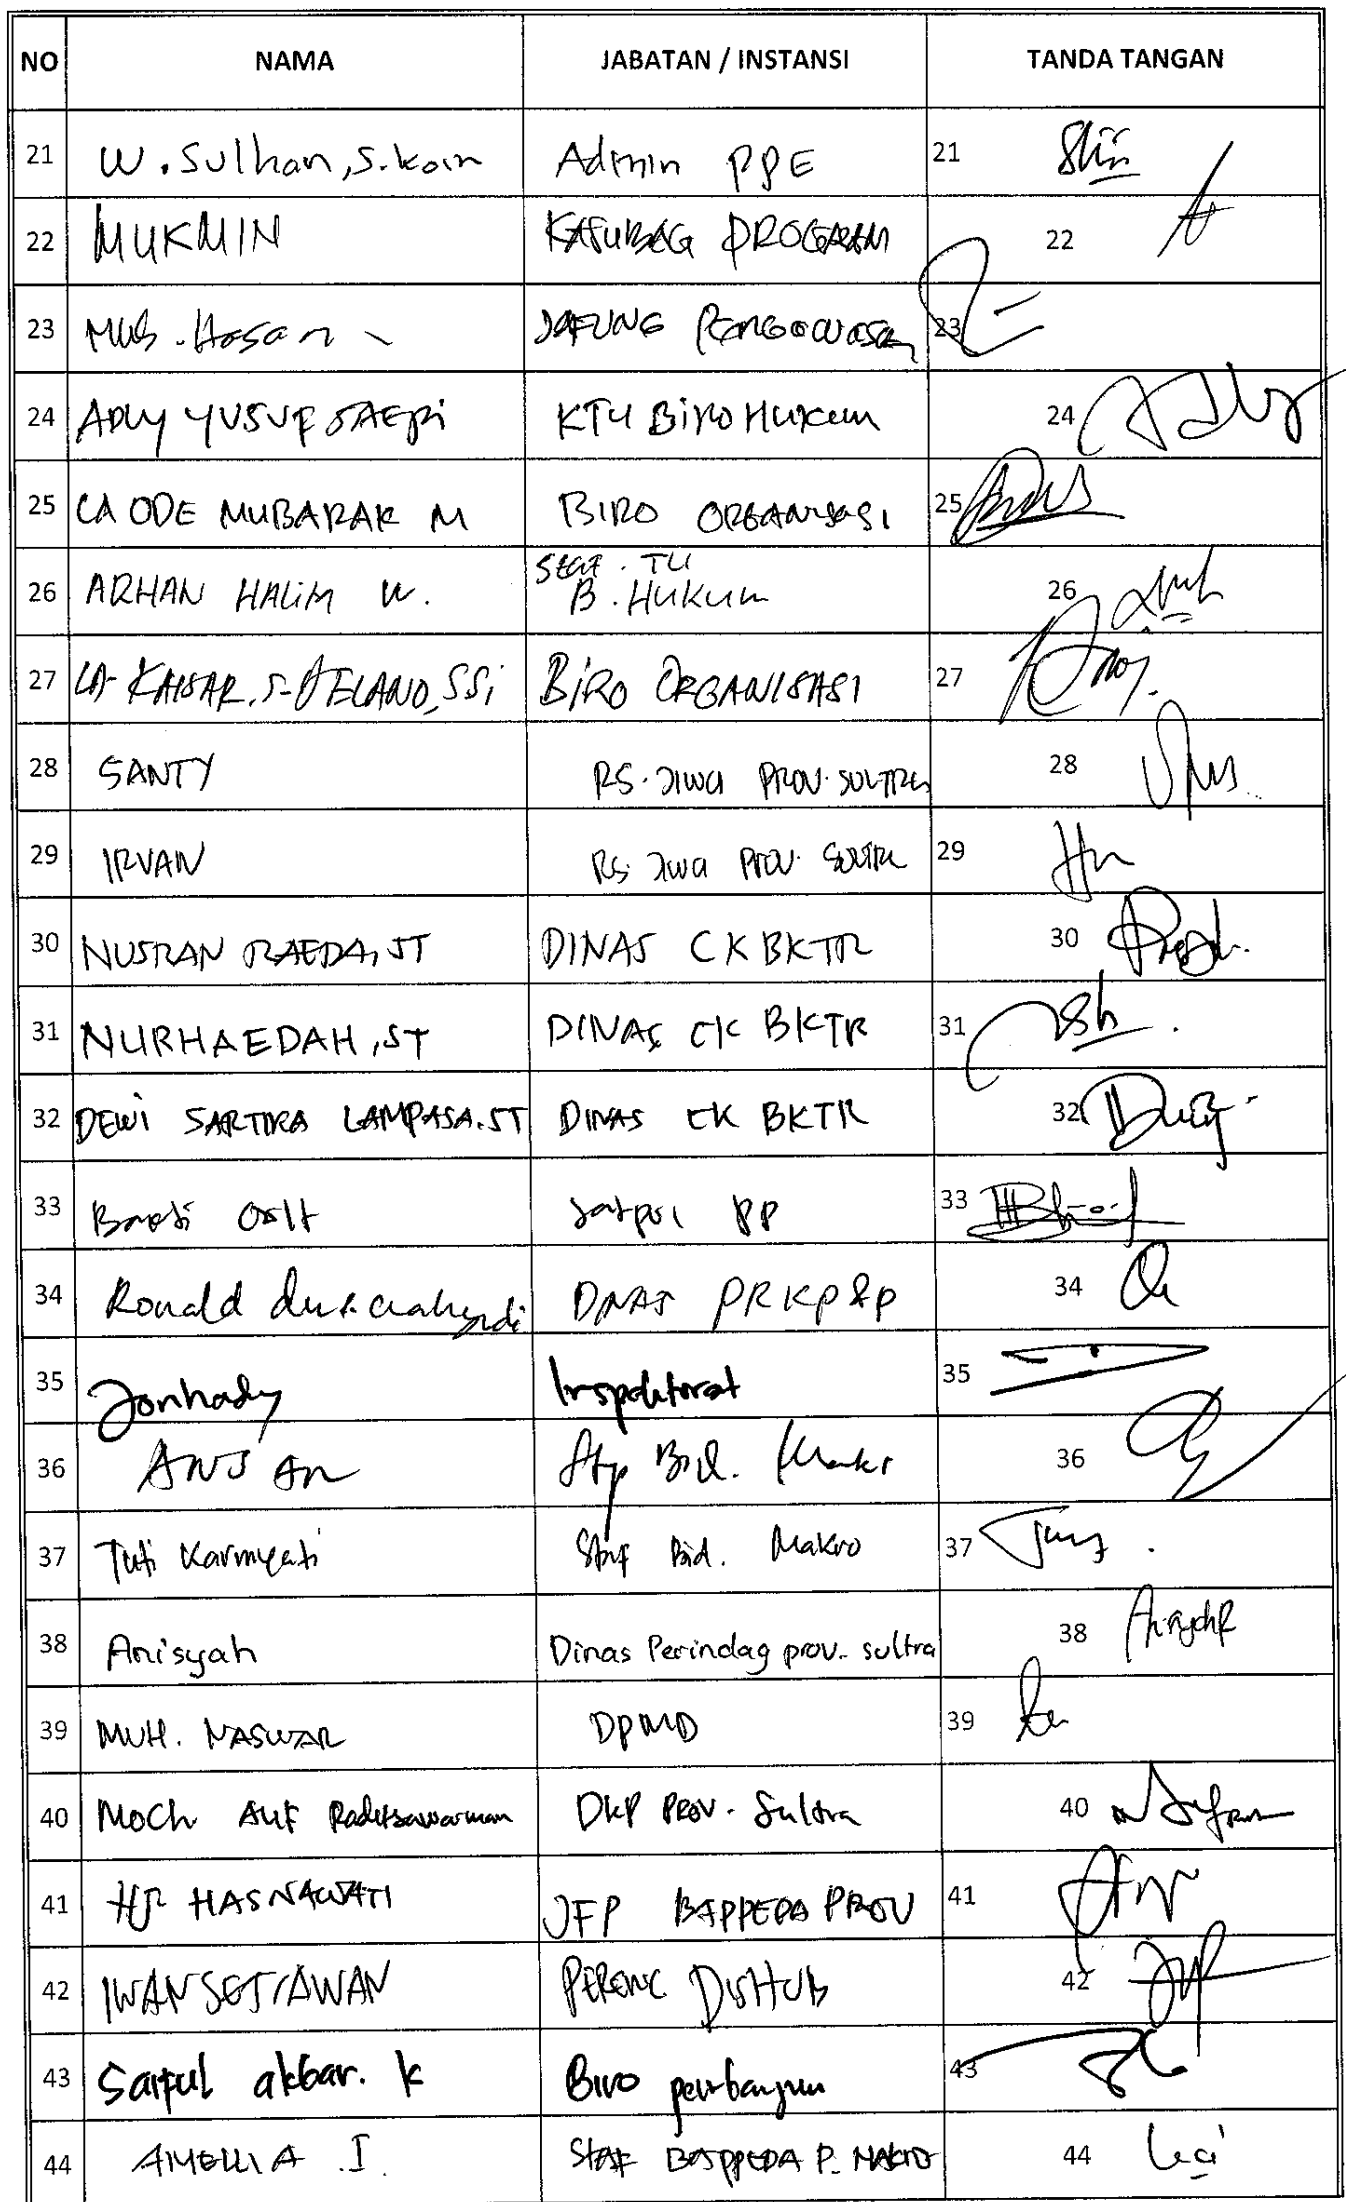 NO NAMA JABATAN / INSTANSI TANDA TANGAN
21 W. Sulhan, S.kom Admin PPE 21
22 MUKMIN KASUBAG PROGRAM 22
23 Muh. Hasan JAFUNG Pengawasan 23
24 YUSUF KTU Biro Hukum 24
25 LA ODE MUBARAK M BIRO ORGANISASI 25
STAF. TU
26 ARHAN HALIM W. B. HUKUM 26
27 LA KAISAR. SSi BIRO ORGANISASI 27
28 SANTY RS. Jiwa PROV. SULTRA 28
29 IRVAN RS. Jiwa PROV. SULTRA 29
30 NUSRAN RAEDA, ST DINAS CK BKTR 30
31 NURHAEDAH, ST DINAS CK BKTR 31
32 DEWI SARTIKA LAMPASA. ST DINAS CK BKTR 32
33 Satpol PP 33
34 Ronald DINAS PRKP&P 34
35 Jonhady Inspektorat 35
36 Bid. Makro 36
37 Tuti Karmyati Staf Bid. Makro 37
38 Anisyah Dinas Perindag prov. sultra 38
39 MUH. NASWAR DPMD 39
40 MOCH ALIF Raditsawarman DKP PROV. Sultra 40
41 HJ HASNAWATI JFP BAPPEDA PROV 41
42 IWAN SETIAWAN PERENC DISHUB 42
43 Saiful akbar. K Biro pembangunan 43
44 AMELLIA .I. Staf BAPPEDA P. MAKRO 44